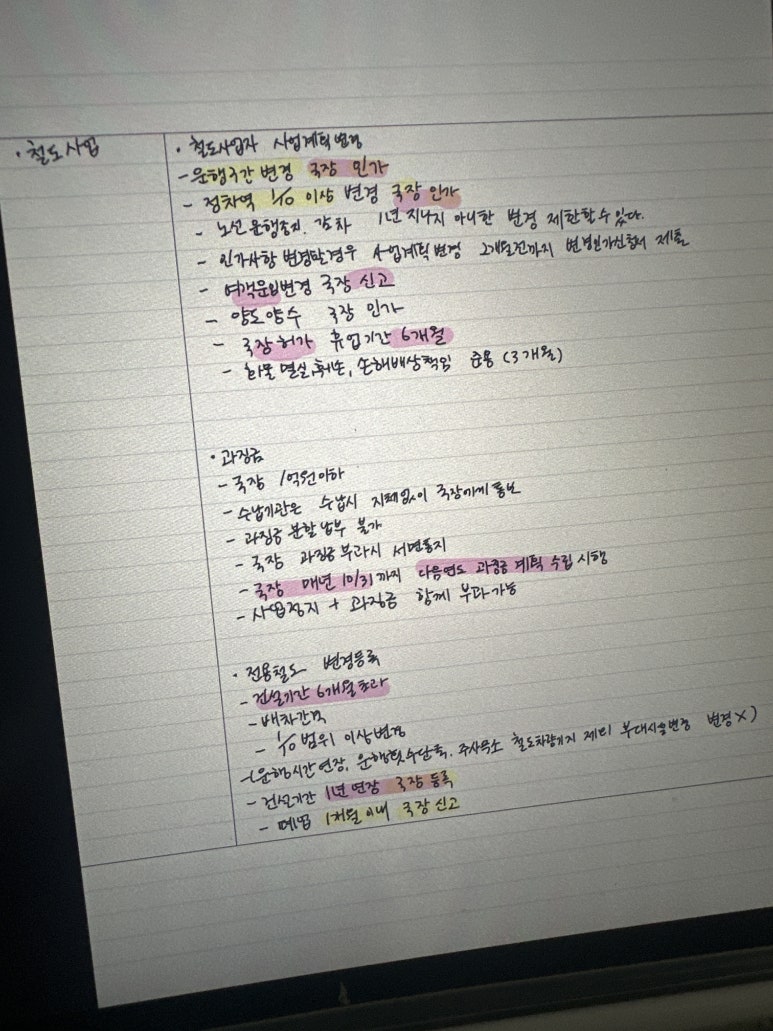 · 철도사업
· 철도사업자 사업계획변경
- 운행구간 변경 국장 인가
- 정차역 1/10 이상 변경 국장 인가
- 노선운행중지. 감차 1년 지나지 아니한 변경 제한할 수 있다.
- 인가사항 변경할경우 사업계획 변경 2개월전까지 변경인가신청서 제출
- 여객운임변경 국장 신고
- 양도양수 국장 인가
- 국장허가 휴업기간 6개월
- 화물 멸실, 훼손, 손해배상책임 준용 (3개월)
· 과징금
- 국장 1억원이하
- 수납기관은 수납시 지체없이 국장에게 통보
- 과징금 분할납부 불가
- 국장 과징금 부과시 서면통지
- 국장 매년 10/31까지 다음연도 과징금 계획 수립 시행
- 사업정지 + 과징금 함께 부과가능
· 전용철도 변경등록
- 건설기간 6개월초과
- 배차간격
- 1/10 범위 이상변경
-(운행시간연장, 운행횟수단축. 주사무소 철도차량기지 제외 부대시설변경 변경X)
- 건설기간 1년 연장 국장 등록
- 폐업 1개월이내 국장 신고